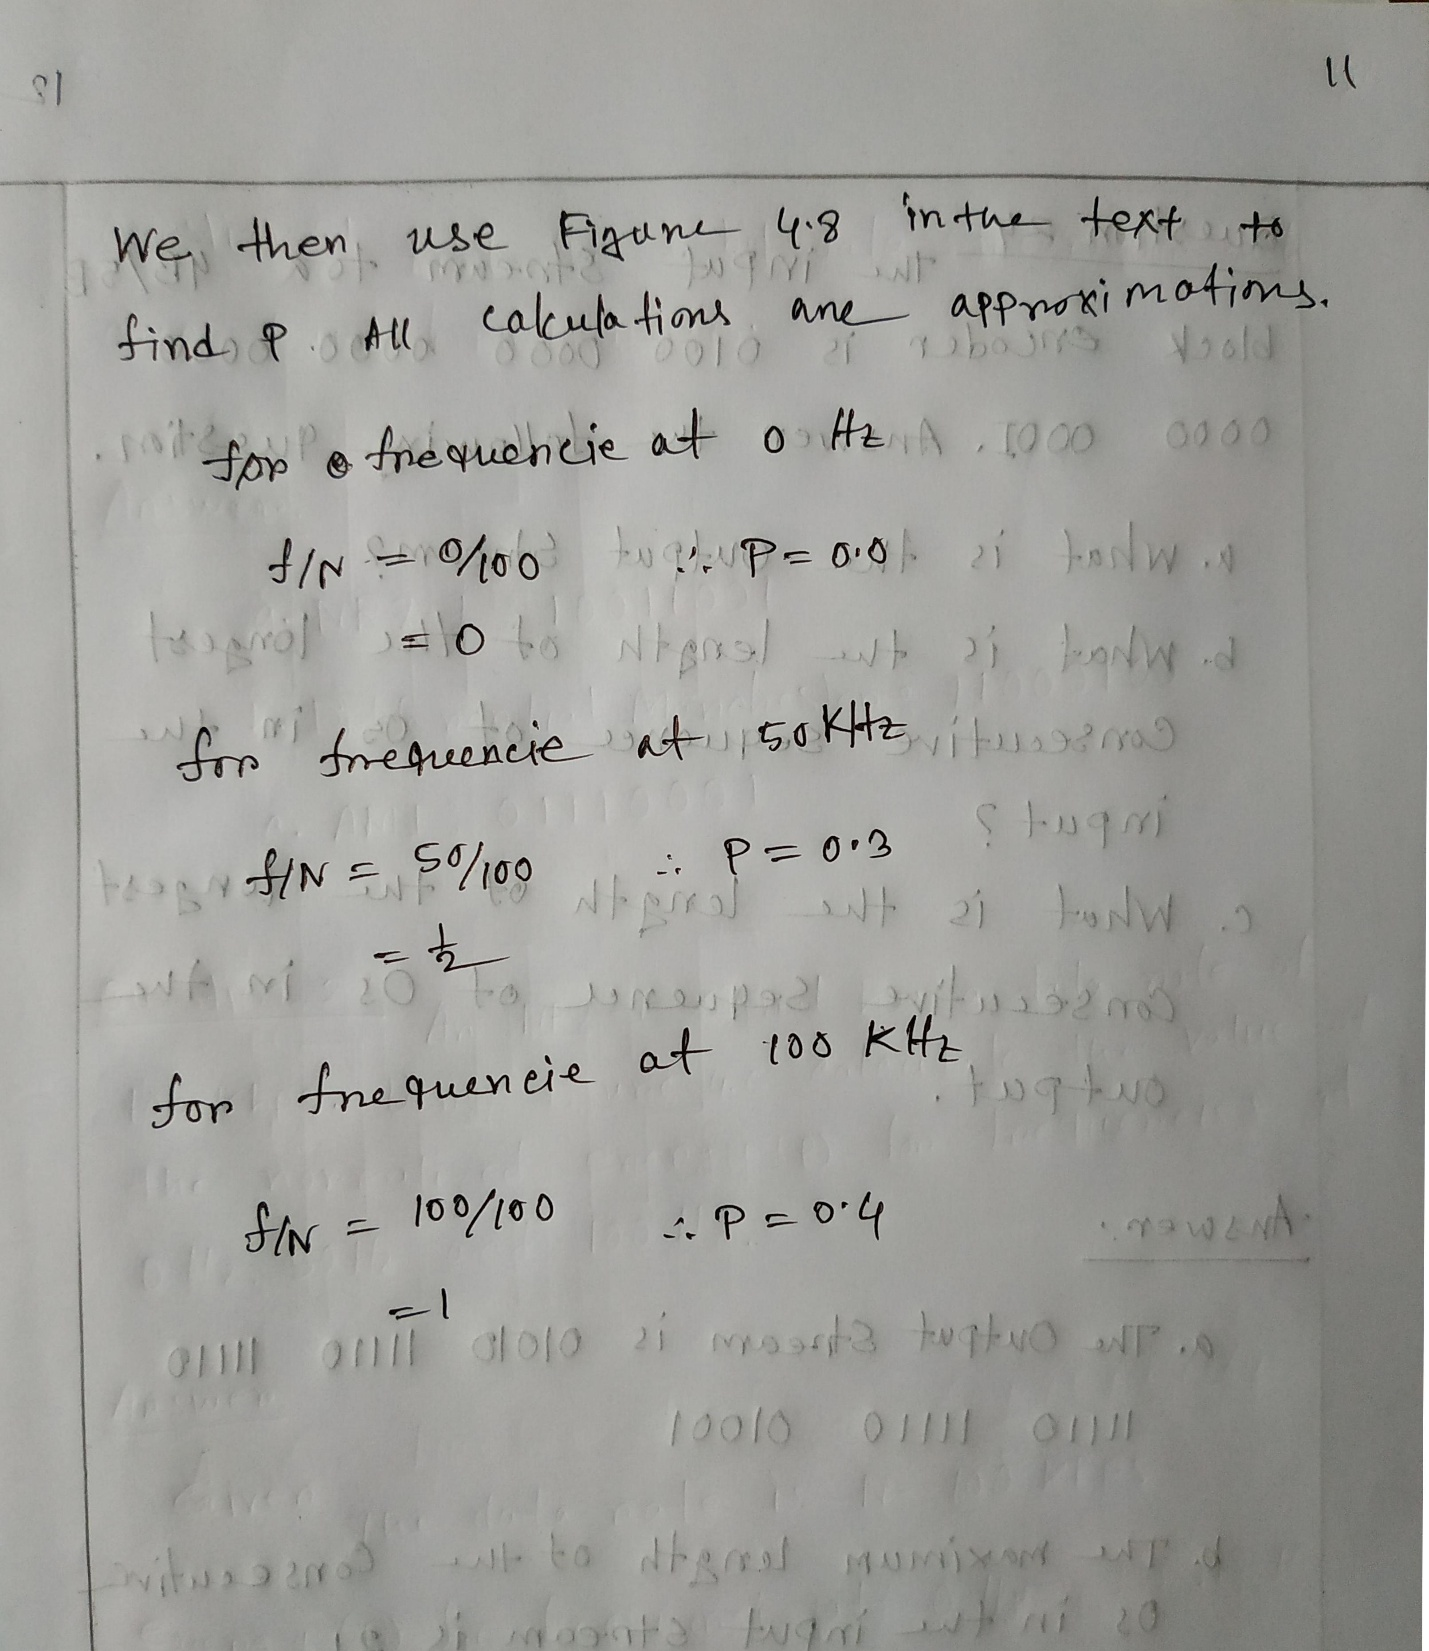 11
We then use Figure 4.8 in the text to
find P. All calculations are approximations.
for frequencie at 0 Hz
f/N = 0/100 ∴ P = 0.0
= 0
for frequencie at 50 KHz
f/N = 50/100 ∴ P = 0.3
= 1/2
for frequencie at 100 KHz
f/N = 100/100 ∴ P = 0.4
= 1